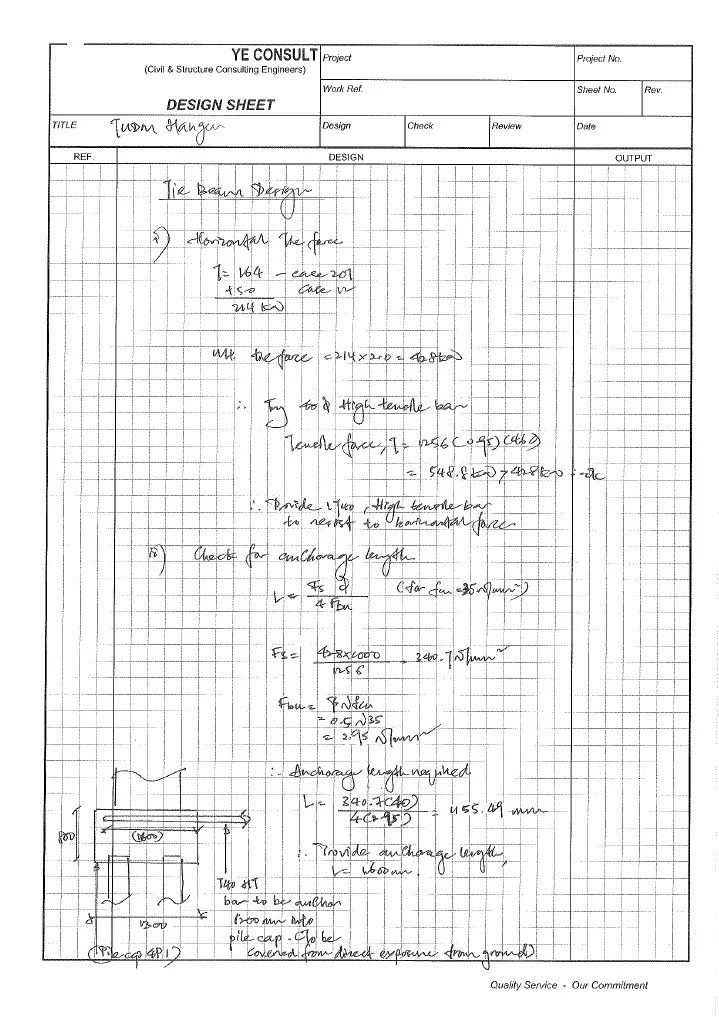 YE CONSULT
(Civil & Structure Consulting Engineers)
DESIGN SHEET
Project
Project No.
Work Ref.
Sheet No.
Rev.
TITLE
Design
Check
Review
Date
REF.
DESIGN
OUTPUT
Tie Beam Design
i) Horizontal Tie force
T = 164 - case 201
+50 case
214 kN
Ult. tie force = 214 x 2.0 = 428 kN
∴ Try High tensile bar
Tensile force, T = 1256 (0.95) (460)
= 548.8 kN > 428 kN ∴ ok
∴ Provide 1T40, High tensile bar
to resist to horizontal force
ii) Check for anchorage length
L = Fs φ / 4 Fbu (for fcu = 35 N/mm²)
Fs = 428 x 1000 / 1256 = 340.7 N/mm²
Fbu = β√fcu
= 0.5 √35
= 2.95 N/mm²
∴ Anchorage length required
L = 340.7 (40) / 4 (2.95) = 1155.49 mm
∴ Provide anchorage length,
L = 1600 mm.
800
(1600)
T40 HT
bar to be anchor
1200 mm into
pile cap. (To be
covered from direct exposure from ground)
1300
(Pile cap 4P1)
Quality Service - Our Commitment